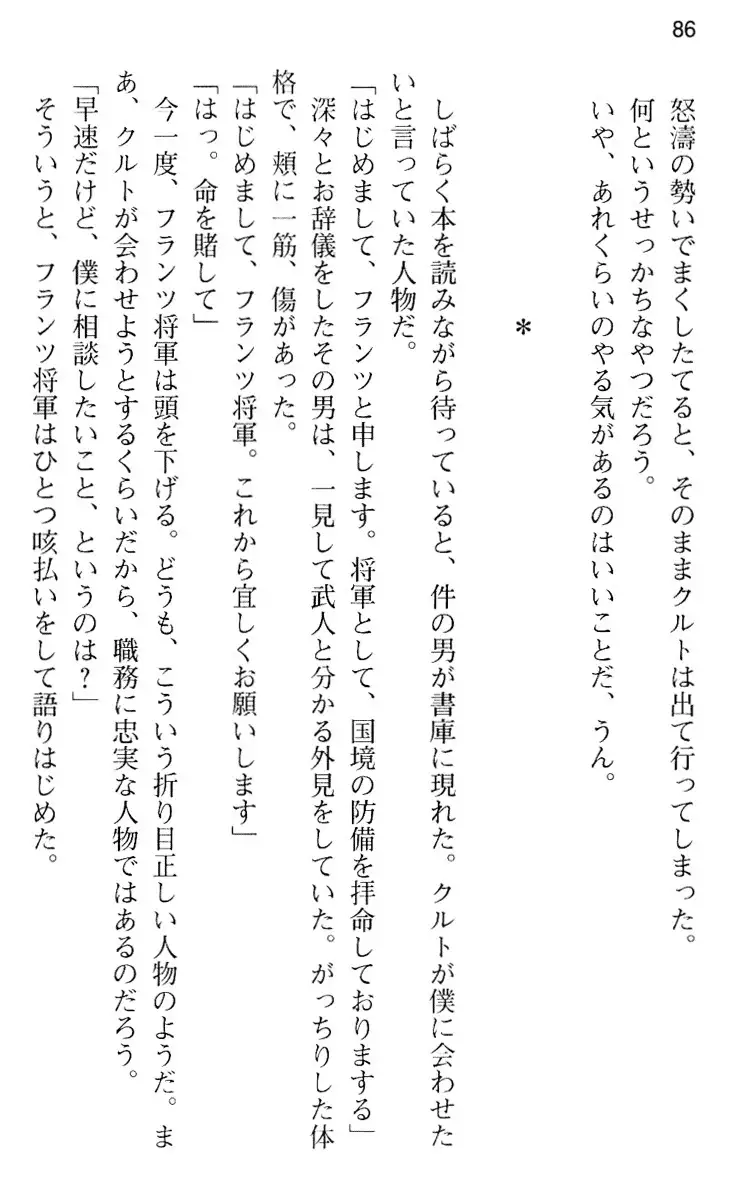 86
怒濤の勢いでまくしたてると、そのままクルトは出て行ってしまった。
何というせっかちなやつだろう。
いや、あれくらいのやる気があるのはいいことだ、うん。
*
しばらく本を読みながら待っていると、件の男が書庫に現れた。クルトが僕に会わせた
いと言っていた人物だ。
「はじめまして、フランツと申します。将軍として、国境の防備を拝命しておりまする」
深々とお辞儀をしたその男は、一見して武人と分かる外見をしていた。がっちりした体
格で、頬に一筋、傷があった。
「はじめまして、フランツ将軍。これから宜しくお願いします」
「はっ。命を賭して」
今一度、フランツ将軍は頭を下げる。どうも、こういう折り目正しい人物のようだ。ま
あ、クルトが会わせようとするくらいだから、職務に忠実な人物ではあるのだろう。
「早速だけど、僕に相談したいこと、というのは?」
そういうと、フランツ将軍はひとつ咳払いをして語りはじめた。